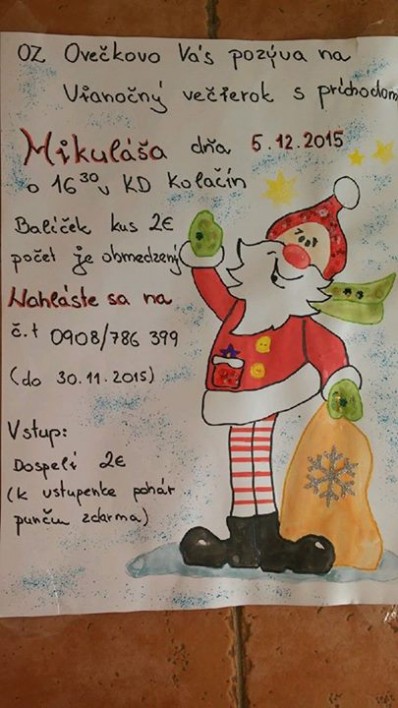 OZ Ovečkovo Vás pozýva na
Vianočný večierok s príchodom
Mikuláša dňa 5.12.2015
o 16³⁰ v KD Kolačín
Balíček kus 2€
počet je obmedzený
Nahláste sa na
č.t 0908/786 399
(do 30.11.2015)
Vstup:
Dospelí 2€
(k vstupenke pohár
punču zdarma)